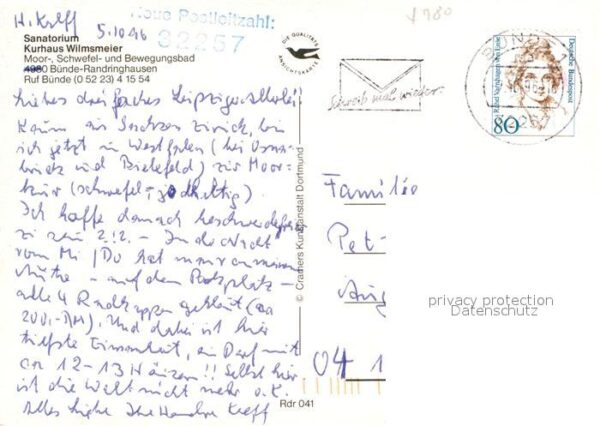 H. Kreff 5.10.96
Neue Postleitzahl:
32257
Sanatorium
Kurhaus Wilmsmeier
Moor-, Schwefel- und Bewegungsbad
4980 Bünde-Randringhausen
Ruf Bünde (0 52 23) 4 15 54
DIE QUALITÄTS
ANSICHTSKARTE
1980
Schreib mal wieder.
BÜNDE
Deutsche Bundespost
80
Liebes dreifaches Leipziger Allerlei!
Kaum aus Sachsen zurück, bin
ich jetzt in Westfalen (bei Osna-
brück und Bielefeld) zur Moor-
kur (schwefel-, jodhaltig).
Ich hoffe danach beschwerdefrei
zu sein 2.12. - In der Nacht
vom Mi / Do hat man an meinem
- auf dem Parkplatz -
alle 4 Radkappen geklaut (ca
200,- DM). Und dabei ist hier
tiefste Einsamkeit, ein Dorf mit
ca 12-13 Häusern!! Selbst hier
ist die Welt nicht mehr o.k.
Alles Liebe Ihre Hannelore Kreff
© Cramers Kunstanstalt Dortmund
Rdr 041
Familie
Pet-
Aug
04 1
privacy protection
Datenschutz